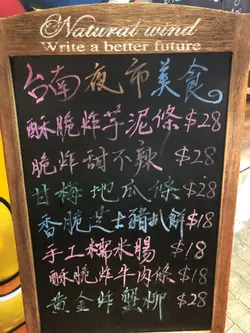 Natural wind
Write a better future
台南夜市美食
酥脆炸芋泥條 $28
脆炸甜不辣 $28
甘梅地瓜條 $28
香脆芝士豬扒餅 $18
手工糯米腸 $18
酥脆炸牛肉條 $18
黃金炸蟹柳 $28